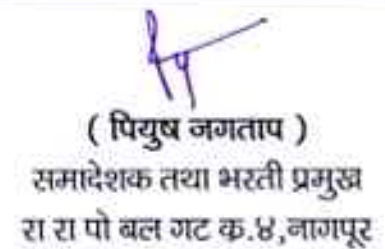 ( पियुष जगताप )
समादेशक तथा भरती प्रमुख
रा रा पो बल गट क्र.४,नागपूर